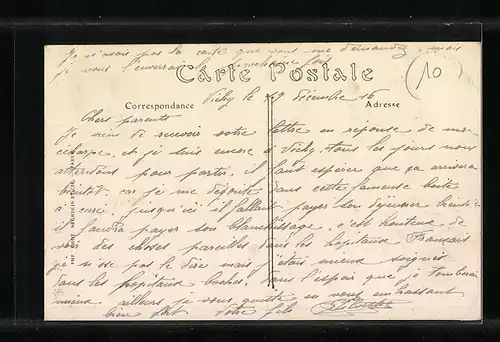 Je n'avais pas la carte que vous me demandez, mais
je vous l'enverrai la prochaine fois
Carte Postale
10
Correspondance
Adresse
Vichy le décembre 16
Chers parents
Je viens de recevoir votre lettre en réponse de ma
et je suis encore à Vichy. tous les jours nous
attendons pour partir. il faut espérer que ça arrivera
bientôt. car je me dégoute dans cette fameuse boîte
à jusqu'ici il fallait payer son déjeuner bientôt
il faudra payer son blanchissage. c'est honteux de
voir des choses pareilles dans les hopitaux Français
je n'ose pas le dire mais j'étais mieux soigné
dans les hopitaux boches. dans l'espoir que je tomberai
mieux ailleurs je vous quitte en vous embrassant
bien fort Votre fils